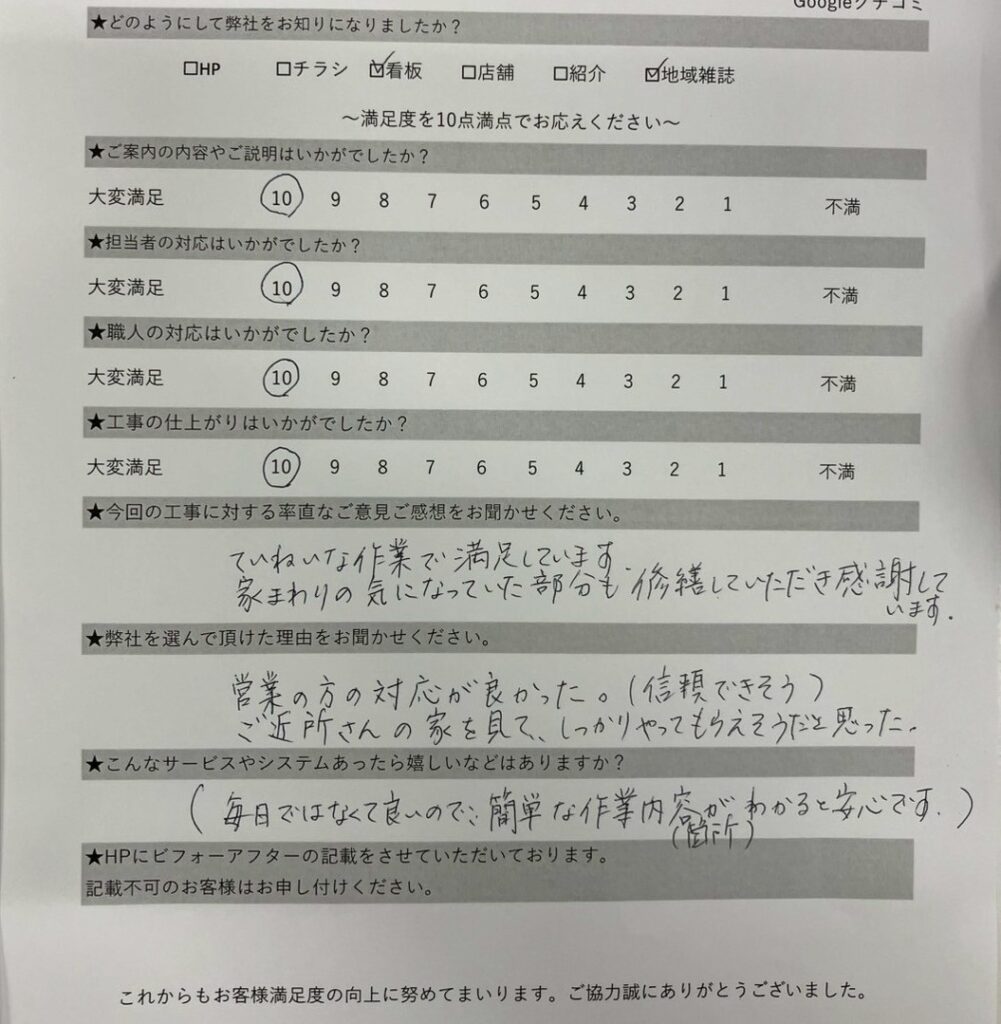 Googleクチコミ
★どのようにして弊社をお知りになりましたか？
□HP □チラシ ☑看板 □店舗 □紹介 ☑地域雑誌
～満足度を10点満点でお応えください～
★ご案内の内容やご説明はいかがでしたか？
大変満足 10 9 8 7 6 5 4 3 2 1 不満
★担当者の対応はいかがでしたか？
大変満足 10 9 8 7 6 5 4 3 2 1 不満
★職人の対応はいかがでしたか？
大変満足 10 9 8 7 6 5 4 3 2 1 不満
★工事の仕上がりはいかがでしたか？
大変満足 10 9 8 7 6 5 4 3 2 1 不満
★今回の工事に対する率直なご意見ご感想をお聞かせください。
ていねいな作業で満足しています.
家まわりの気になっていた部分も修繕していただき感謝して
います.
★弊社を選んで頂けた理由をお聞かせください。
営業の方の対応が良かった。(信頼できそう)
ご近所さんの家を見て、しっかりやってもらえそうだと思った.
★こんなサービスやシステムあったら嬉しいなどはありますか？
(毎日ではなくて良いので:簡単な作業内容がわかると安心です.)
(箇所)
★HPにビフォーアフターの記載をさせていただいております。
記載不可のお客様はお申し付けください。
これからもお客様満足度の向上に努めてまいります。ご協力誠にありがとうございました。